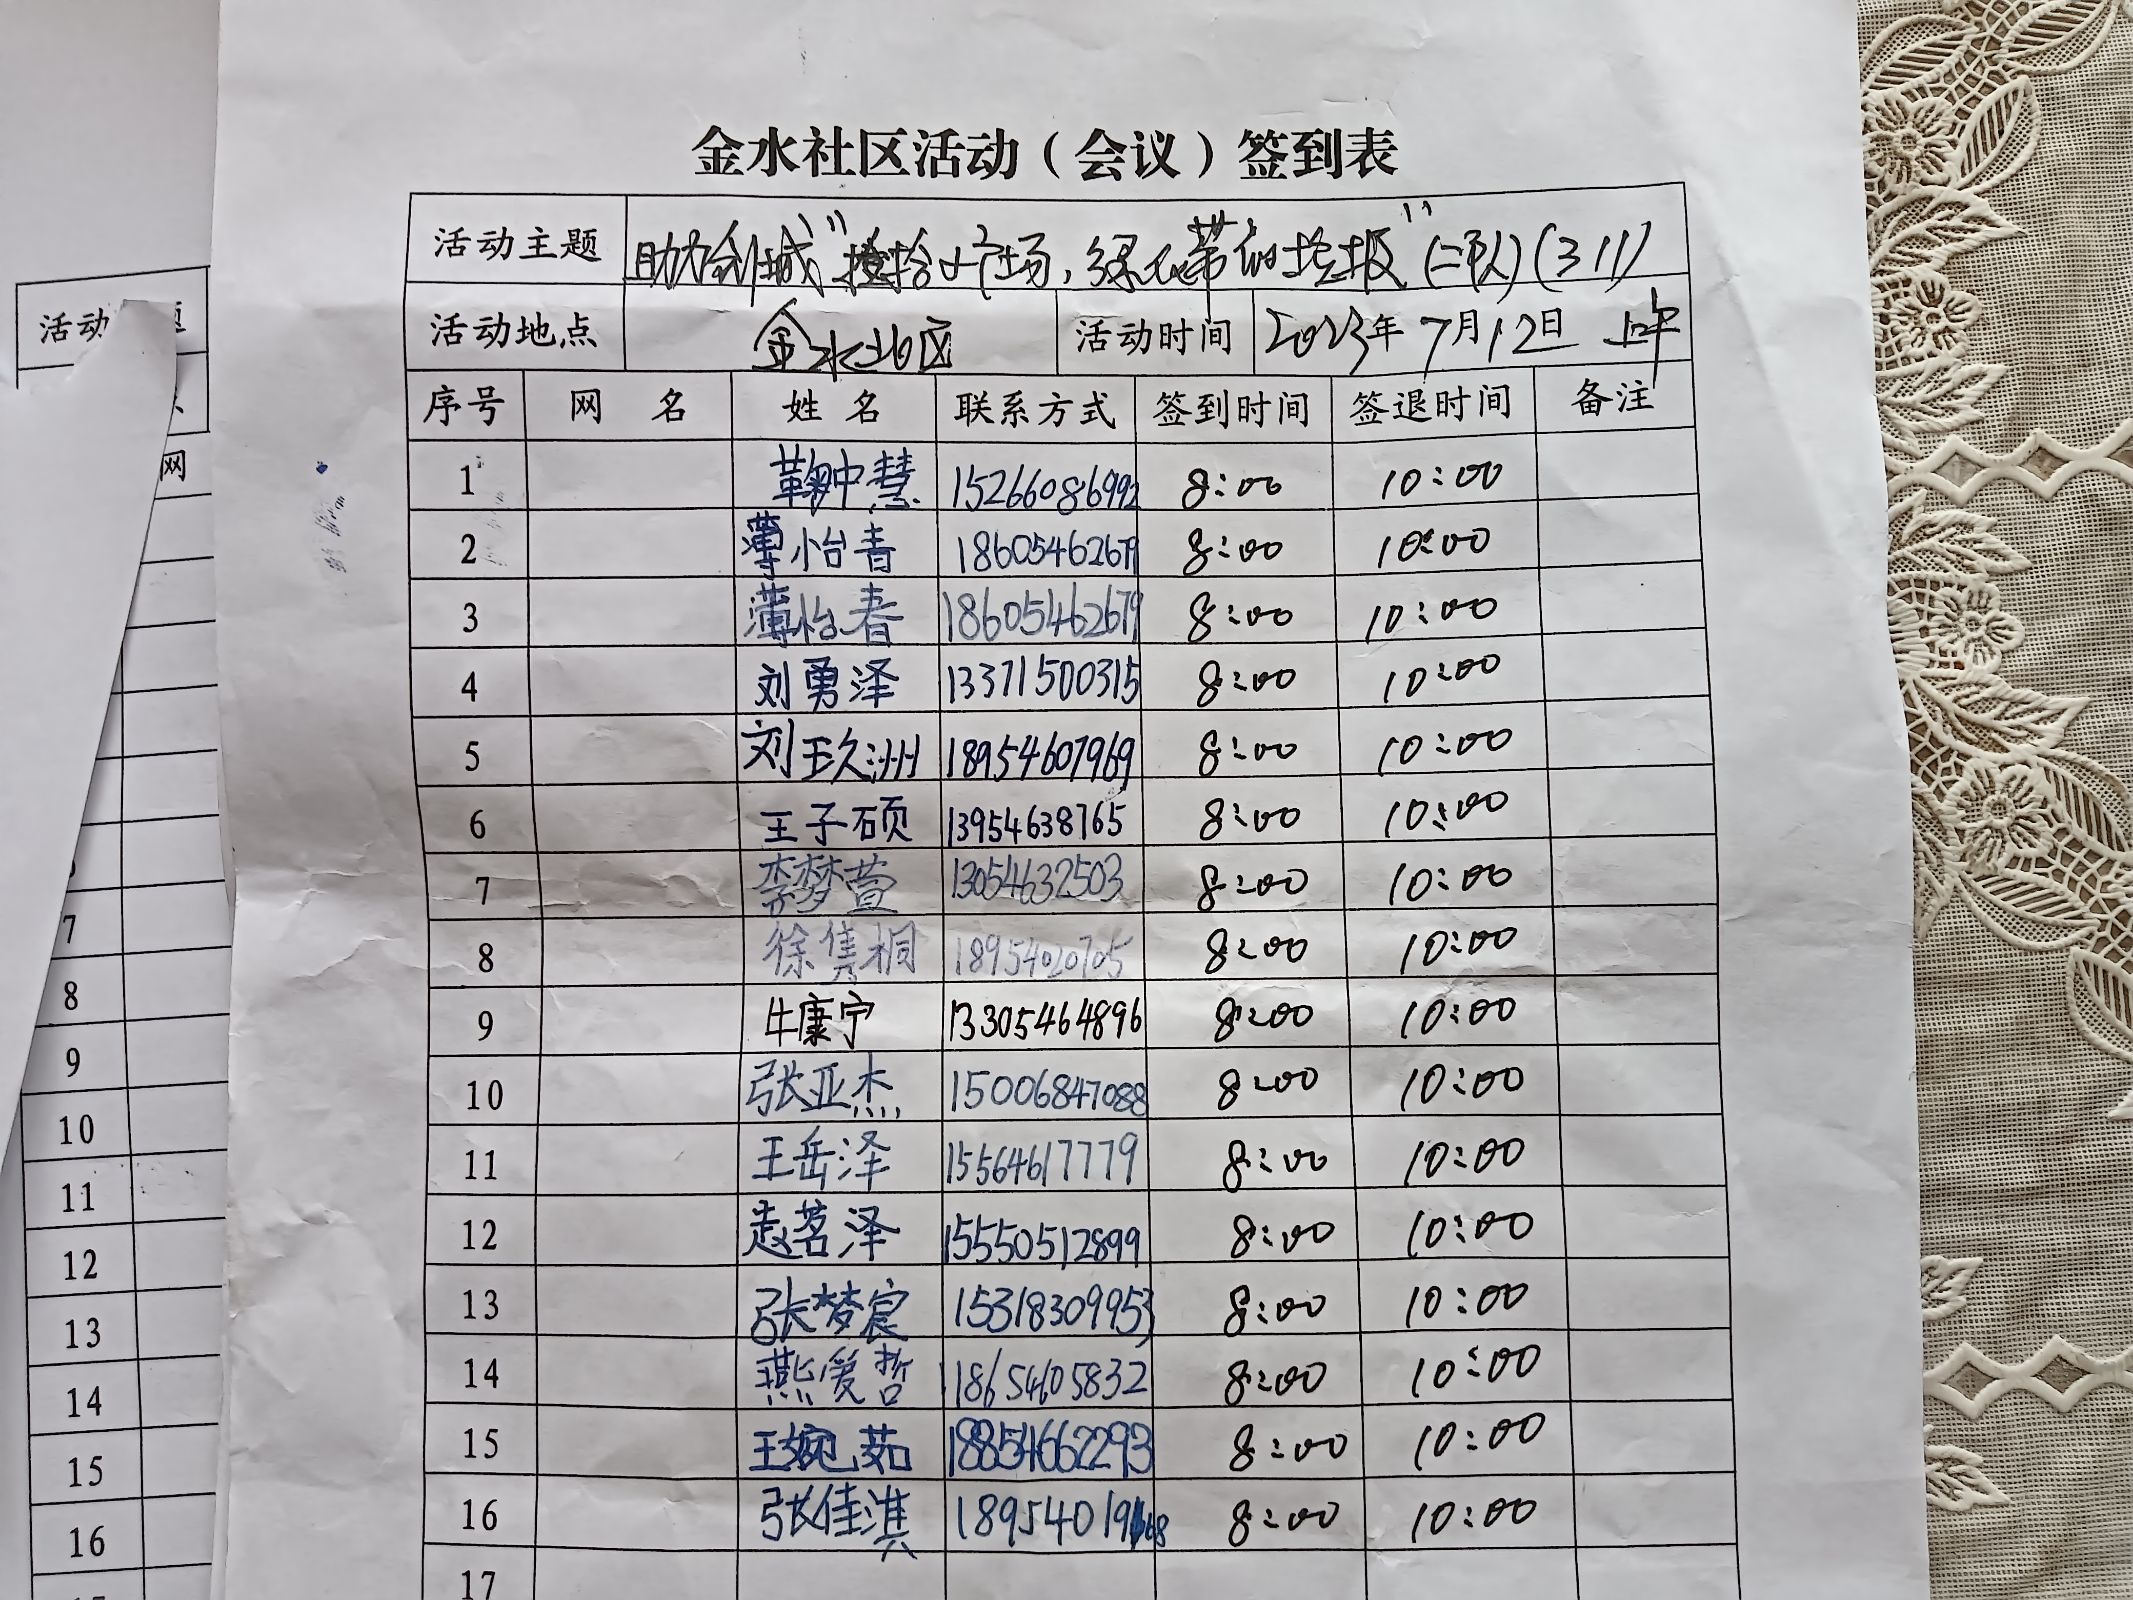 金水社区活动（会议）签到表
活动主题 助力创城"捡拾小广场，绿化带的垃圾"（二队）（311）
活动地点 金水北区 活动时间 2023年7月12日 上午
序号 网 名 姓 名 联系方式 签到时间 签退时间 备注
1 鞠中慧 15266086992 8:00 10:00
2 薄怡青 18605462679 8:00 10:00
3 薄怡春 18605462679 8:00 10:00
4 刘勇泽 13371500315 8:00 10:00
5 刘玖洲 18954607969 8:00 10:00
6 王子硕 13954638765 8:00 10:00
7 李梦萱 13054632503 8:00 10:00
8 徐隽桐 18954020705 8:00 10:00
9 牛康宁 13305464896 8:00 10:00
10 张亚杰 15006847088 8:00 10:00
11 王岳泽 15564617779 8:00 10:00
12 袁茗泽 15550512899 8:00 10:00
13 张梦宸 15318309953 8:00 10:00
14 燕爱哲 18654605832 8:00 10:00
15 王婉茹 18854662293 8:00 10:00
16 张佳淇 8:00 10:00
17
活动
网
7
8
9
10
11
12
13
14
15
16